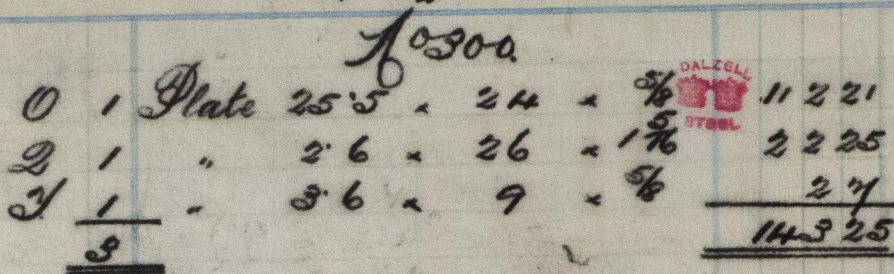 No 300.
O 1 Plate 25·5 × 24 × 5/8 DALZELL STEEL 11 2 21
Q 1 " 2·6 × 26 × 1 5/16 2 2 25
Y 1 " 3·6 × 9 × 5/8 2 7
3 14 3 25